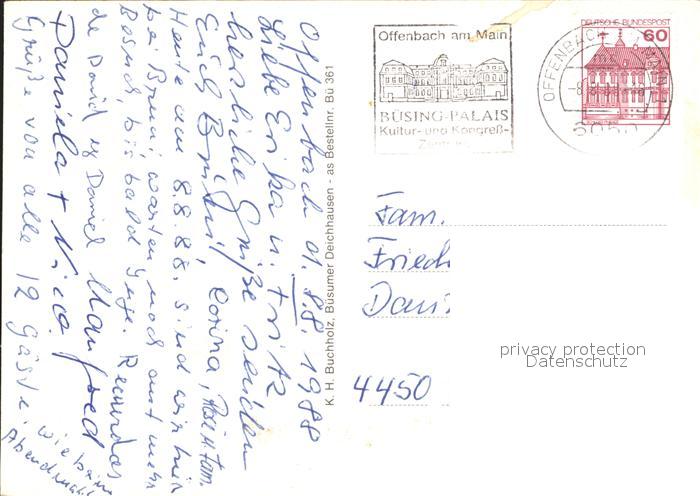 Offenbach d. 8.8.1988
Liebe Erika u. Fritz
herzliche Grüße senden
Euch Corina,
Heute am 8.8.88. sind wir hier
bei warten noch auf mehr
Besuch, bis bald Recuerdos
de David y Daniel Manfred
Daniela + Nico.
Grüße von alle 12 Gäste,
wie beim
Abendmahl
K. H. Buchholz, Büsumer Deichhausen - as Bestellnr. Bü 361
Offenbach am Main
BÜSING-PALAIS
Kultur- und Kongreß-
Zentrum
DEUTSCHE BUNDESPOST
60
OFFENBACH
6050
Fam.
Friedr
Dani
4450
privacy protection
Datenschutz